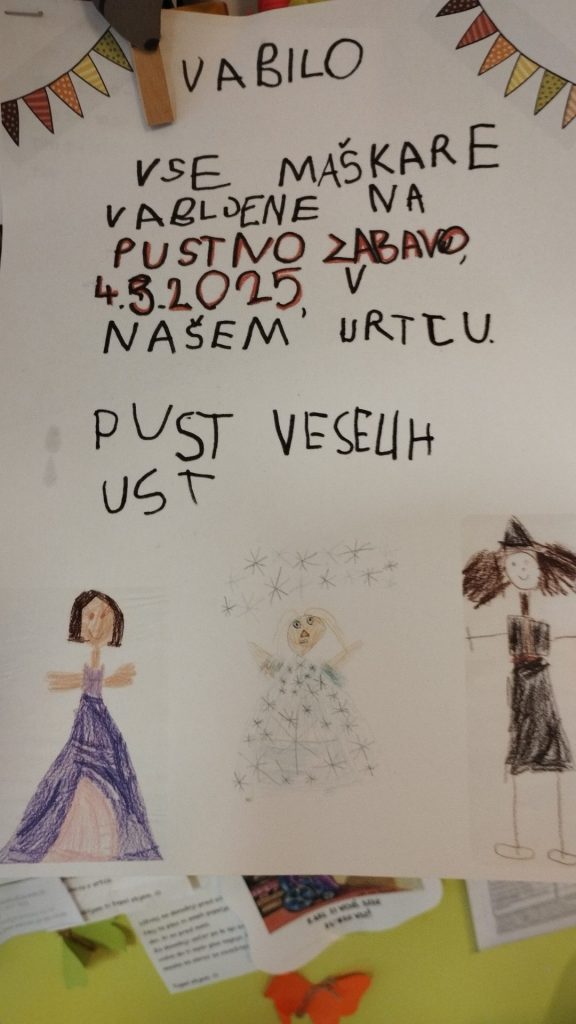 VABILO
VSE MAŠKARE
VABLJENE NA
PUSTNO ZABAVO,
4.3.2025, V
NAŠEM VRTCU.
PUST VESELIH
UST